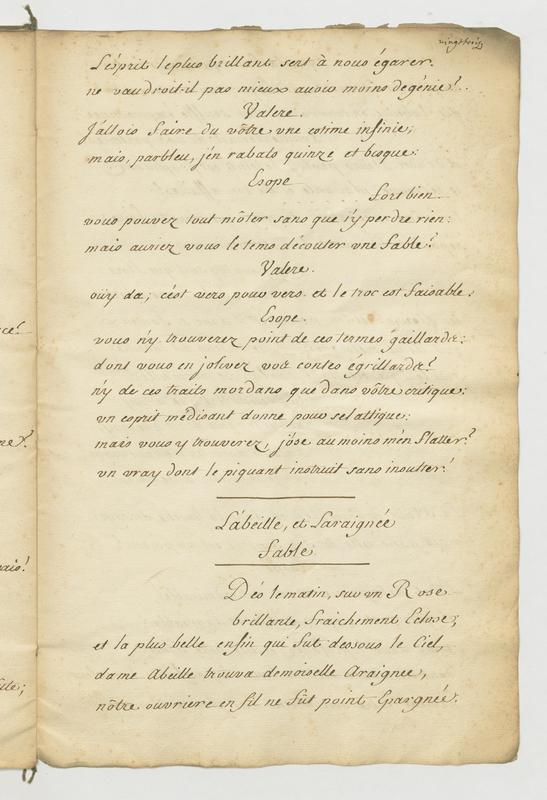 vingt trois
L'ésprit le plus brillant sert à nous égarer.
ne vaudroit-il pas mieux avoir moins de génie?
Valere.
J'allois faire du vôtre vne estime infinie,
mais, parbleu, j'en rabats quinze et bisque:
Esope
Fort bien.
vous pouvez tout m'ôter sans que j'y perdre rien:
mais auriez vous le tems d'écouter vne fable?
Valere.
oüy da; c'ést vers pour vers et le troc est faisable.
Esope.
vous n'y trouverez point de ces termes gaillards:
dont vous enjolivez vos contes égrillards?
n'y de ces traits mordans que dans vôtre critique:
vn esprit médisant donne pour sel attique:
mais vous y trouverez, j'óse au moins m'en flatter?
vn vray dont le piquant instruit sans insulter!
L'abeille, et L'araignée
Fable
Dés le matin, sur vn Rose
brillante, fraichement Eclose;
et la plus belle enfin qui fut dessous le Ciel,
dame Abeille trouva demoiselle Araignée,
nôtre ouvriere en fil ne fût point Epargnée.